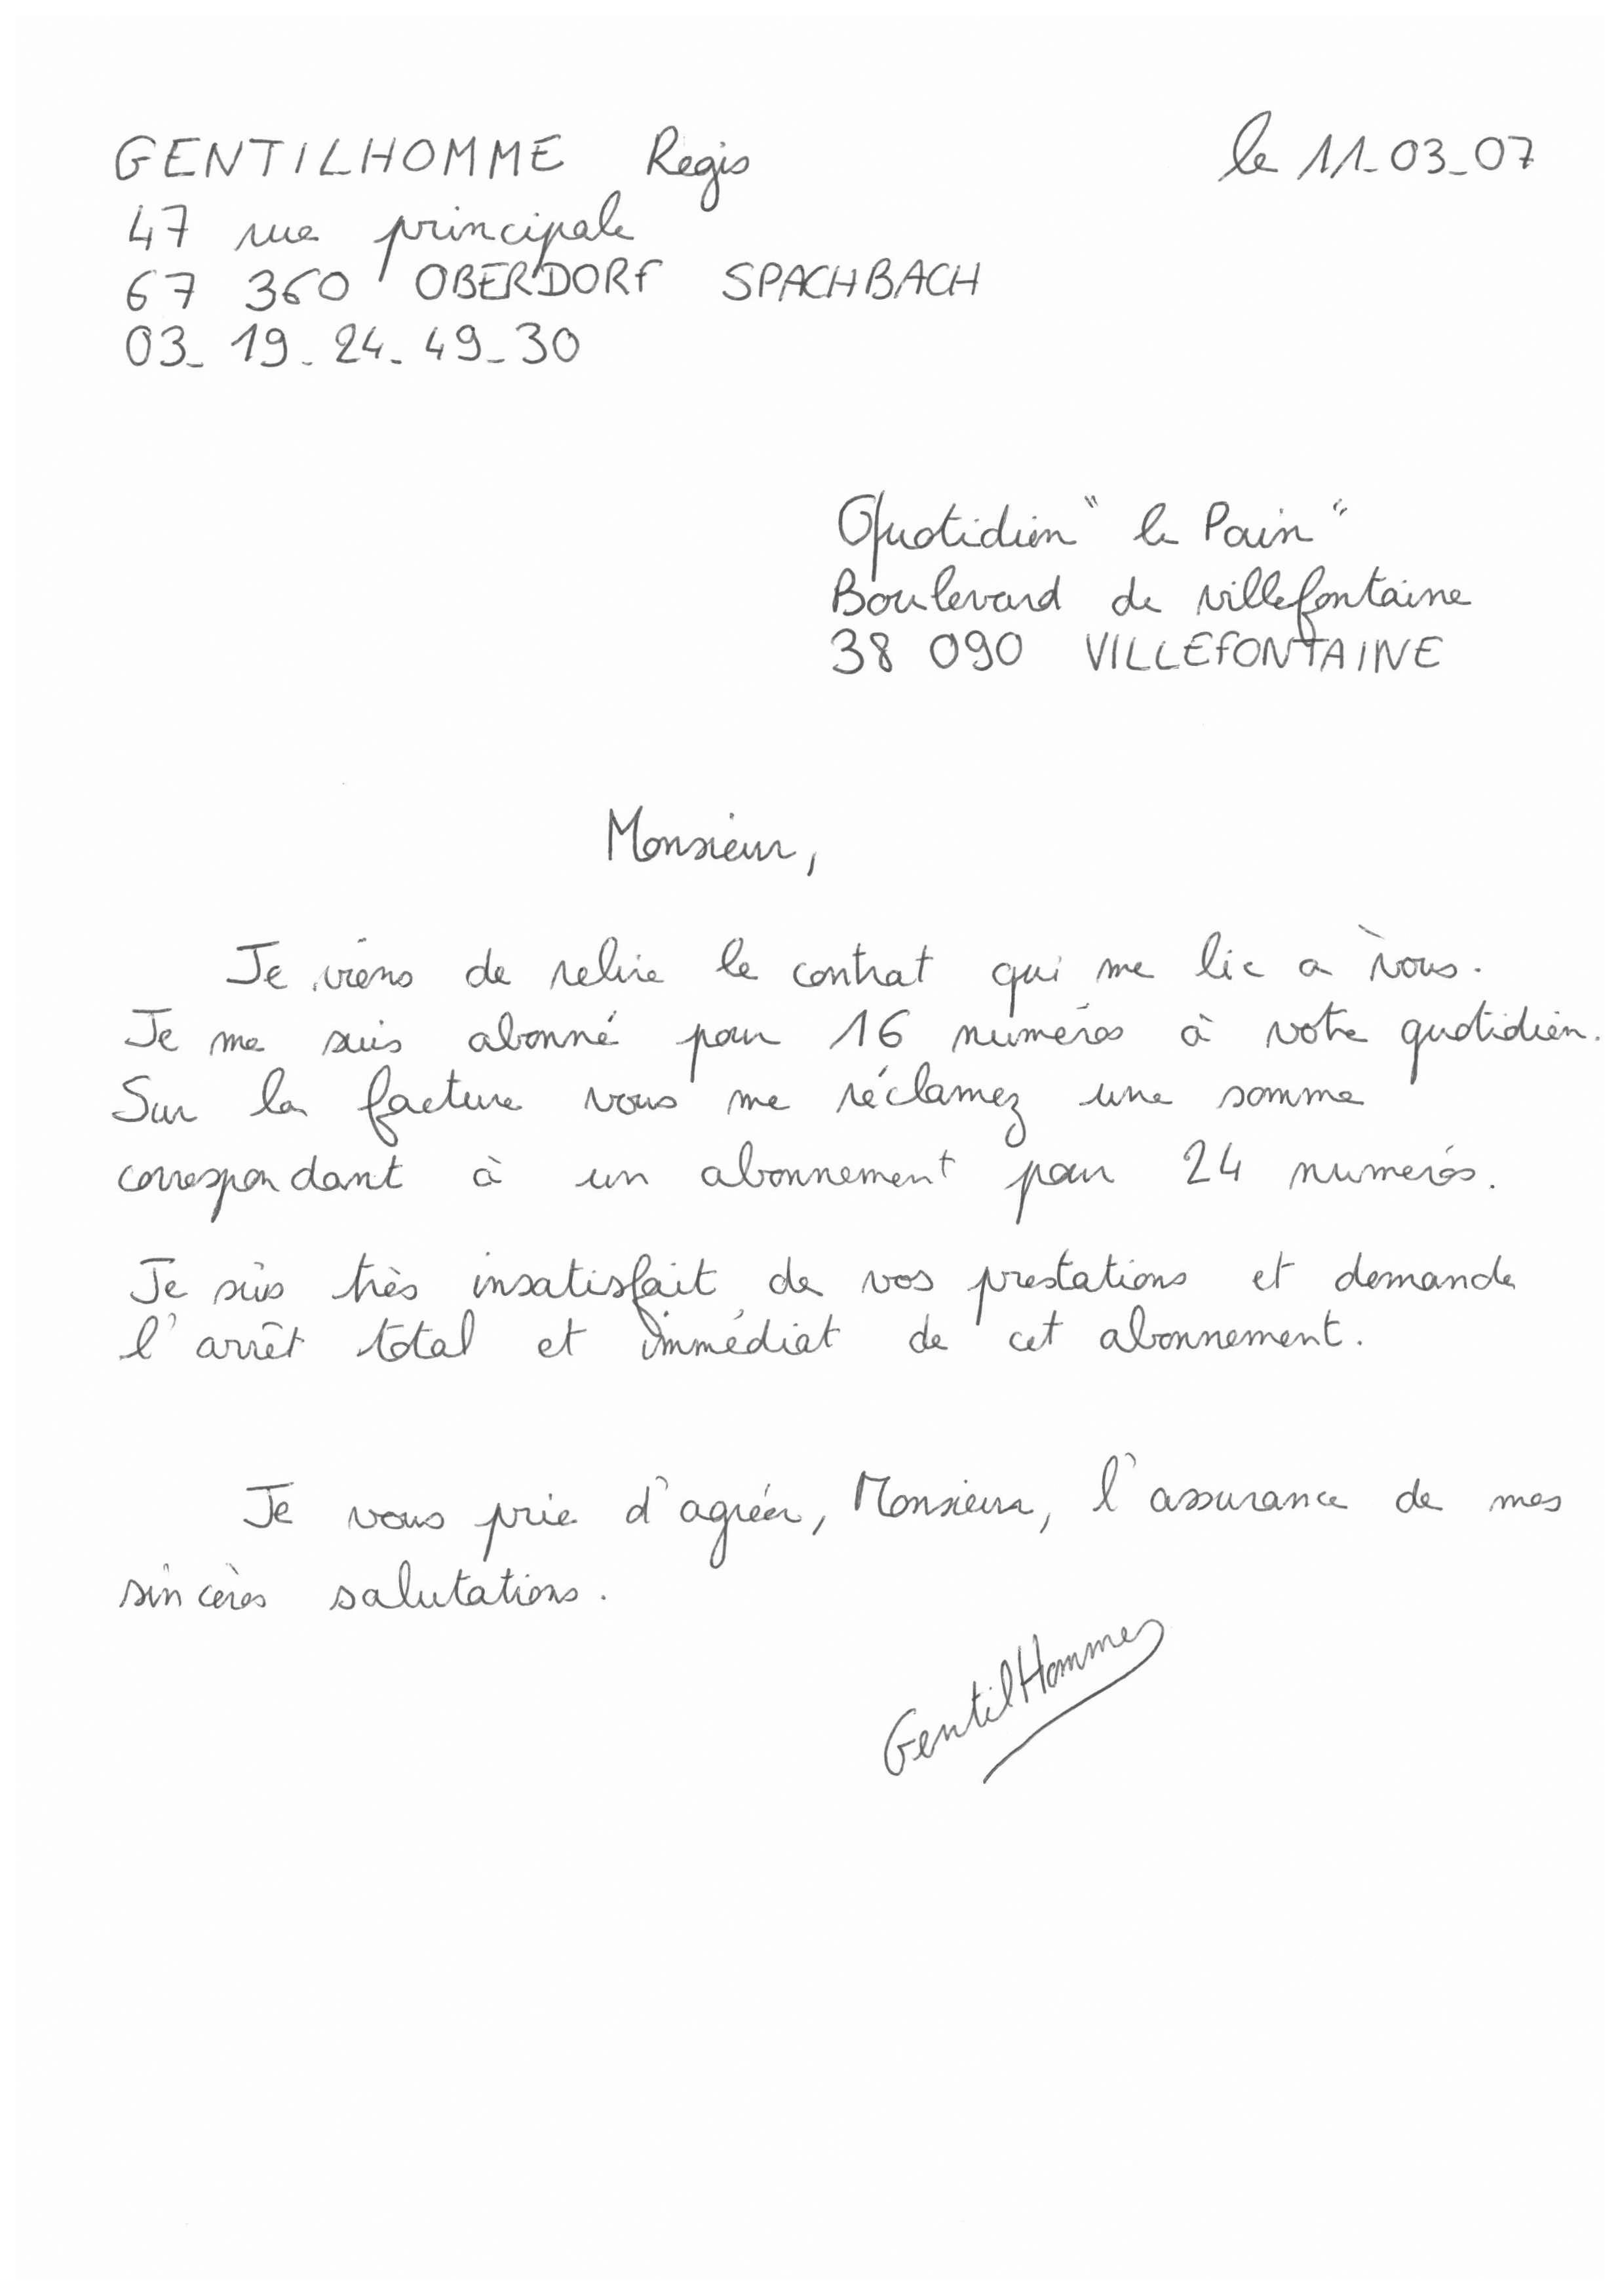 GENTILHOMME Regis
le 11_03_07
47 rue principale
67 360 OBERDORF SPACHBACH
03_ 19_ 24_ 49_30
Quotidien " le Pain "
Boulevard de villefontaine
38 090 VILLEFONTAINE
Monsieur,
Je viens de relire le contrat qui me lie à vous.
Je me suis abonné pour 16 numéros à votre quotidien.
Sur la facture vous me réclamez une somme
correspondant à un abonnement pour 24 numéros.
Je suis très insatisfait de vos prestations et demande
l'arrêt total et immédiat de cet abonnement.
Je vous prie d'agréer, Monsieur, l'assurance de mes
sincères salutations.
GentilHomme